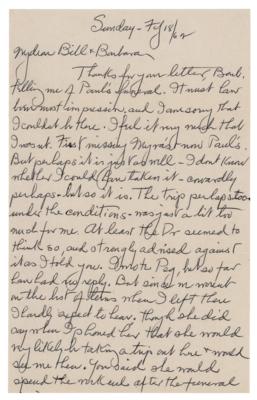 Sunday - Fey 18/62
My dear Bill & Barbara,
Thanks for your letter, Barb.
telling me of Paul's funeral. It must have
been most impressive, and I am sorry that
I couldn't be there. I feel it very much that
I was out. First missing Myra's now Paul's.
But perhaps it is just as well - I don't know
whether I could have taken it - cowardly
perhaps - but so it is. The trip perhaps too -
under the conditions - was just a bit too
much for me. At least the Dr seemed to
think so, and strongly advised against
it as I told you. I wrote Peg, but so far
have had no reply. But since I'm
on the list of when I left there
I hardly expect to hear. Though she did
say when I phoned her that she would
very likely be taking a trip out here & would
see me then. You said she would
spend the week end after the funeral